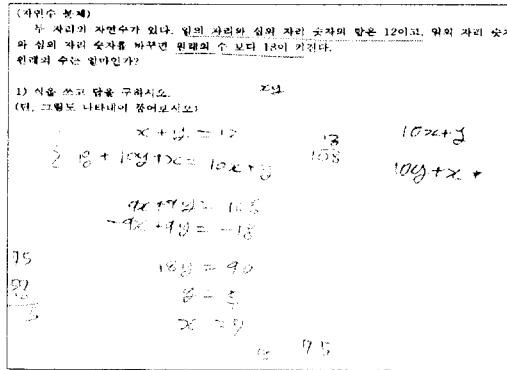 (자연수 문제)
두 자리의 자연수가 있다. 일의 자리와 십의 자리 숫자의 합은 12이고, 일의 자리 숫자
와 십의 자리 숫자를 바꾸면 원래의 수 보다 18이 커진다.
원래의 수는 얼마인가?
1) 식을 쓰고 답을 구하시오.
xy
(단, 그림도 나타내어 풀어보시오)
x + y = 12
10x+y
18 + 10y+x = 10x+y
108
10y+x +
9x+9y = 108
-9x+9y = -18
75
18y = 90
57
y = 5
x = 7
75